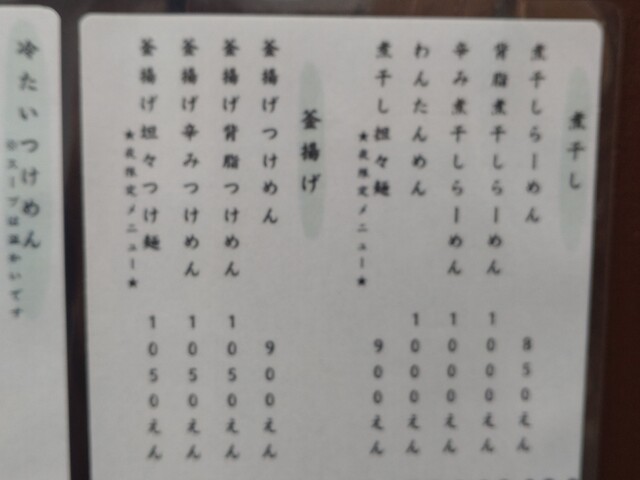 煮干し
煮干しらーめん 850えん
背脂煮干しらーめん 1000えん
辛み煮干しらーめん 1000えん
わんたんめん 1000えん
煮干し担々麺 900えん
★夜限定メニュー★
釜揚げ
釜揚げつけめん 900えん
釜揚げ背脂つけめん 1050えん
釜揚げ辛みつけめん 1050えん
釜揚げ担々つけ麺 1050えん
★夜限定メニュー★
冷たいつけめん
※スープは温かいです